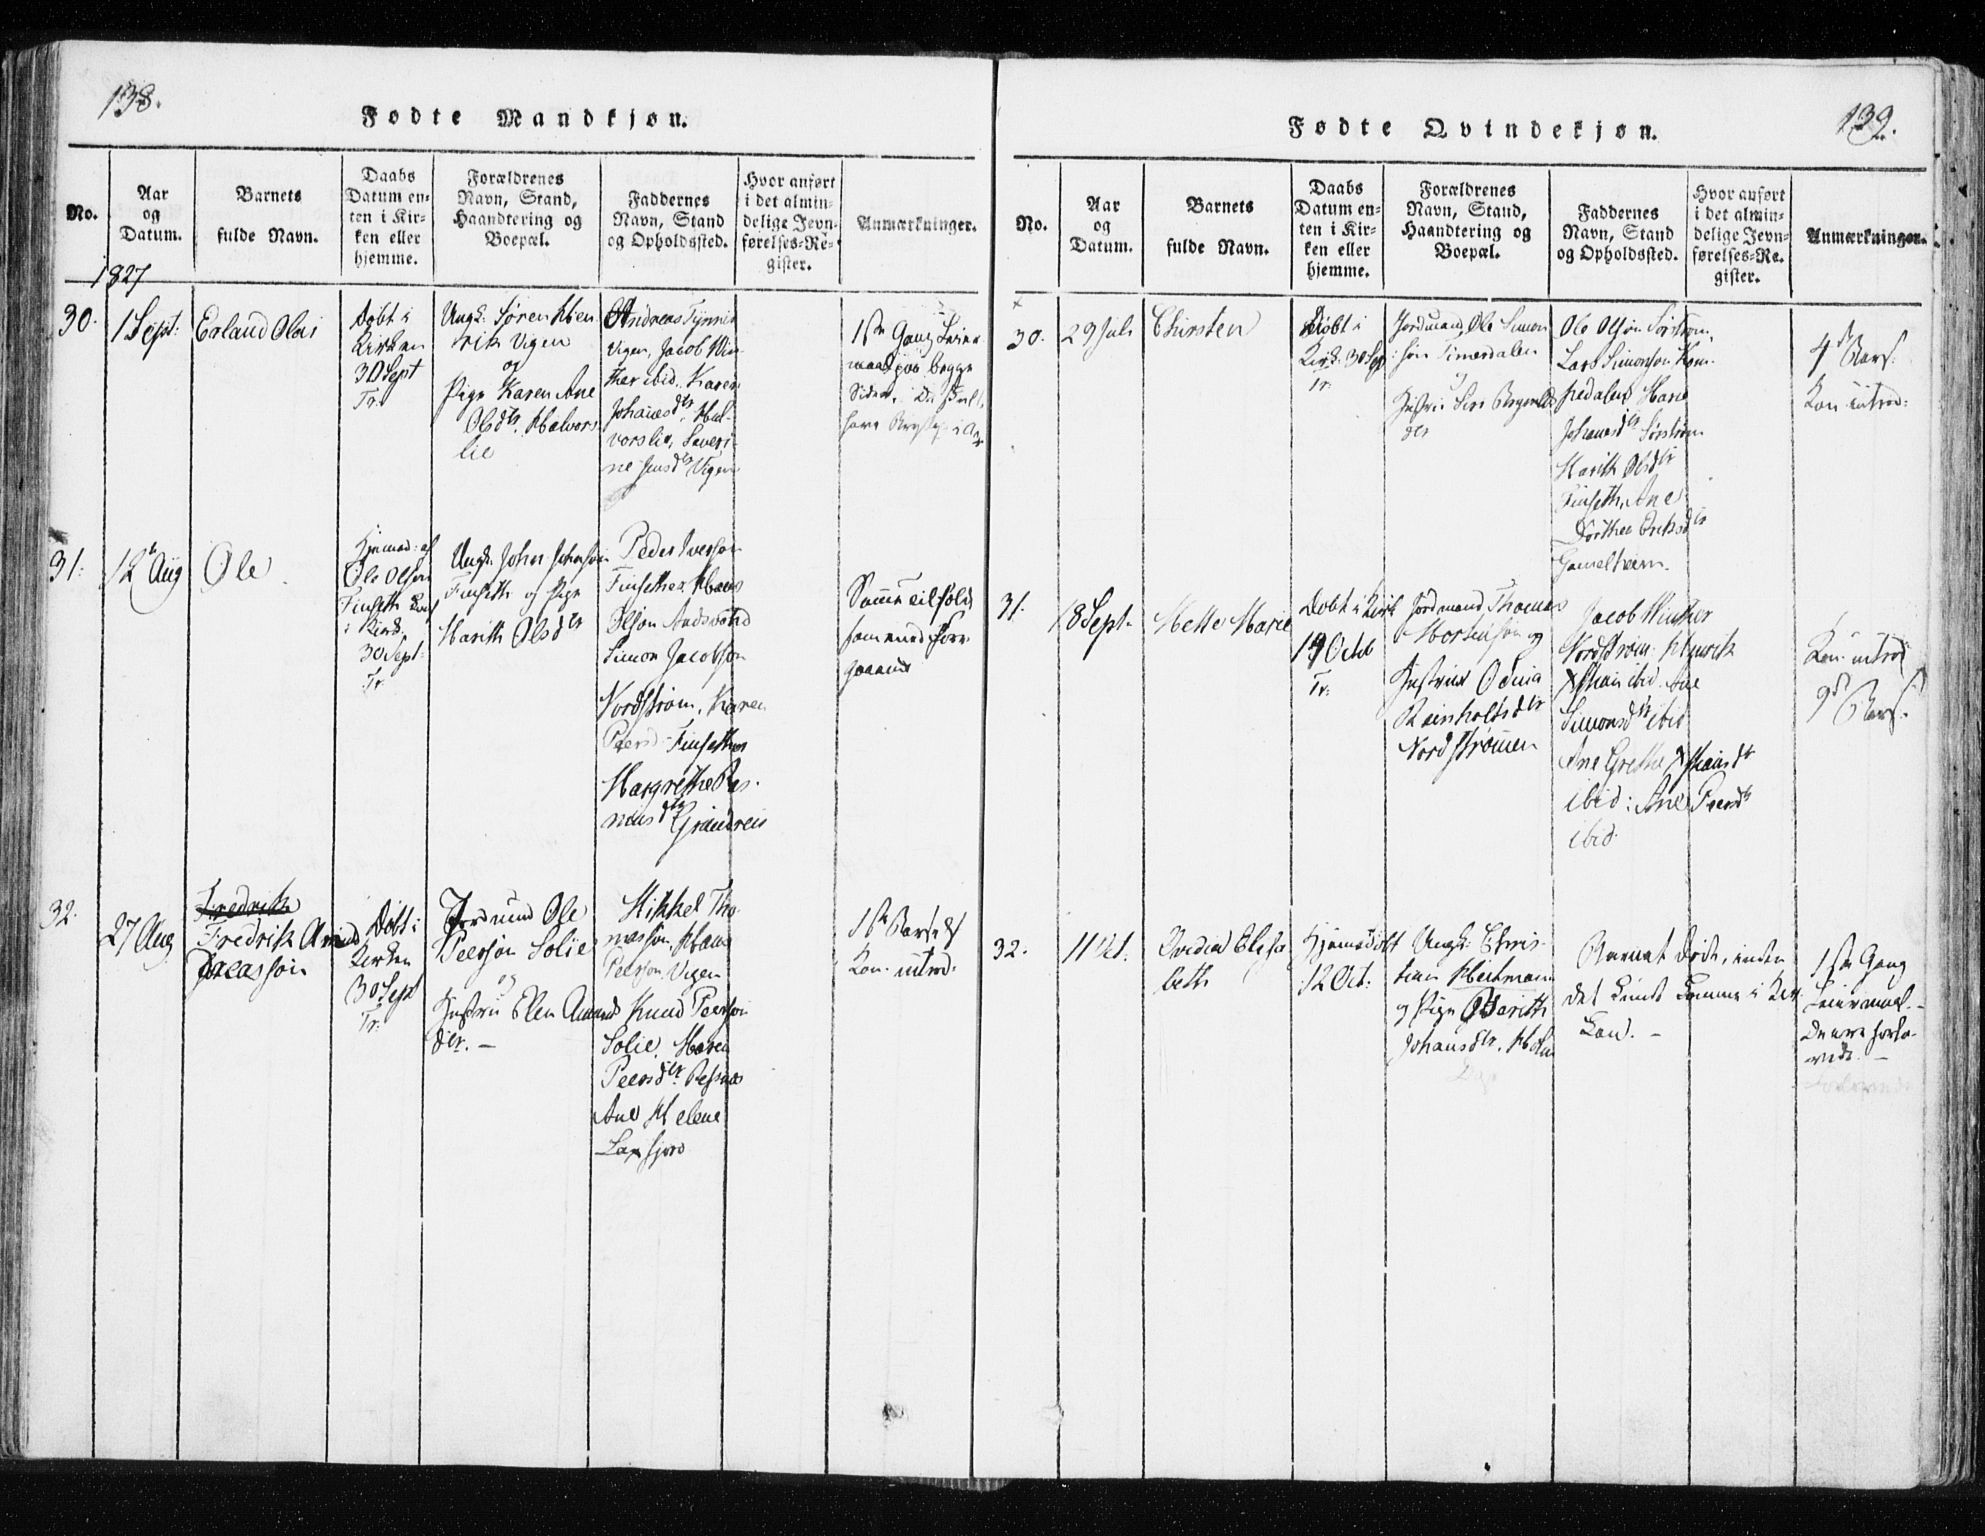 138.
Fødte Mandkjøn.
No.
Aar
og
Datum.
Barnets
fulde Navn.
Daabs
Datum en-
ten i Kir-
ken eller
hjemme.
Forældrenes
Navn, Stand,
Haandtering og
Boepæl.
Faddernes
Navn, Stand
og Opholdssted.
Hvor anført
i det almin-
delige Jevn-
førelses-Re-
gister.
Anmærkninger.
1827
30.
1 Sept:
Erland Olai
Døbt i
Kirken
30 Sept
Tr.
Ungk: Søren Hen
rik Vigen
og
Pige Karen Ane
Olsdtr. Halvors
lie
Andreas Tynnis
Vigen, Jacob Win-
ther ibid. Karen
Johanesdtr, Hal-
vorslie, Severi-
ne Jensdtr Vigen
1ste Gang Leier
maal paa begge
Sider.
31.
12 Aug
Ole
Hjemmed: af
Ole Olsen
Finseth
i Kirk.
30 Sept:
Tr.
Ungk. Johan Johanson
Finseth og Pige
Marith Olsdtr
Peder Iverson
Finsethes, Hans
Olson Andsvand
Simon Jacobson
Nordstrøm, Karen
Peersd. Finsethes
Margrethe Ras-
musdtr Grandreis
Samme
som med Fore
gaaende
32.
27 Aug
Fredrik
Fredrik Arnd
Greasson
Døbt i
Kirken
30 Sept
Tr.
Jordmand Ole
Peerson Solie
og
Hustru Elen Amunds
dtr. —
Mikkel Tho-
masson, Hans
Peerson Vigen
Knud Peerson
Solie, Maren
Peersdtr. Resnæs
Ane Helene
Laxfjord
1ste Barsel
Kon: introd:
139.
Fødte Qvindekjøn.
No.
Aar
og
Datum.
Barnets
fulde Navn.
Daabs
Datum en-
ten i Kir-
ken eller
hjemme.
Forældrenes
Navn, Stand,
Haandtering og
Boepæl.
Faddernes
Navn, Stand
og Opholdssted.
Hvor anført
i det almin-
delige Jevn-
førelses-Re-
gister.
Anmærkninger.
30.
29 Juli
Chirsten
Døbt i
Kirk: 30 Sep
Tr.
Jordmand Ole Simon
søn Timesdalen
og
Hustru Siri
dtr
Ole Olson Sørstrøm,
Lars Simonson
Marie
Johanesdtr Sørstrøm
Marith Olsdtr
Finseth, Ane
Dorthea Eriksdtr
Gameltvern.
4de Bars:
Kon: introd:
31.
18 Sept.
Mette Marie
Døbt i Kirk
19 Octob
Tr.
Jordmand Thomas
Mortenson og
Hustrue Odina
Reinholtsdtr
Nordstrømen
Jacob Winther
Nordstrøm. Henrik
Xstian ibid. Ane
Simonsdtr ibid
Ane Grethe Xstiansdtr
ibid: Ane Peersdtr
ibid.
Kon. introd
9de Bars:
32.
11 Oct.
Ovidia Elisa
beth
Hjemedøbt
12 Oct:
Ungk: Chris-
tian Heitmann
og Pige Berith
Johansdtr. Holm
Barnet døde, inden
det kunde komme i Kir
ken. —
1ste Gang
Leiermaal. —
De ere forlo-
vede. —